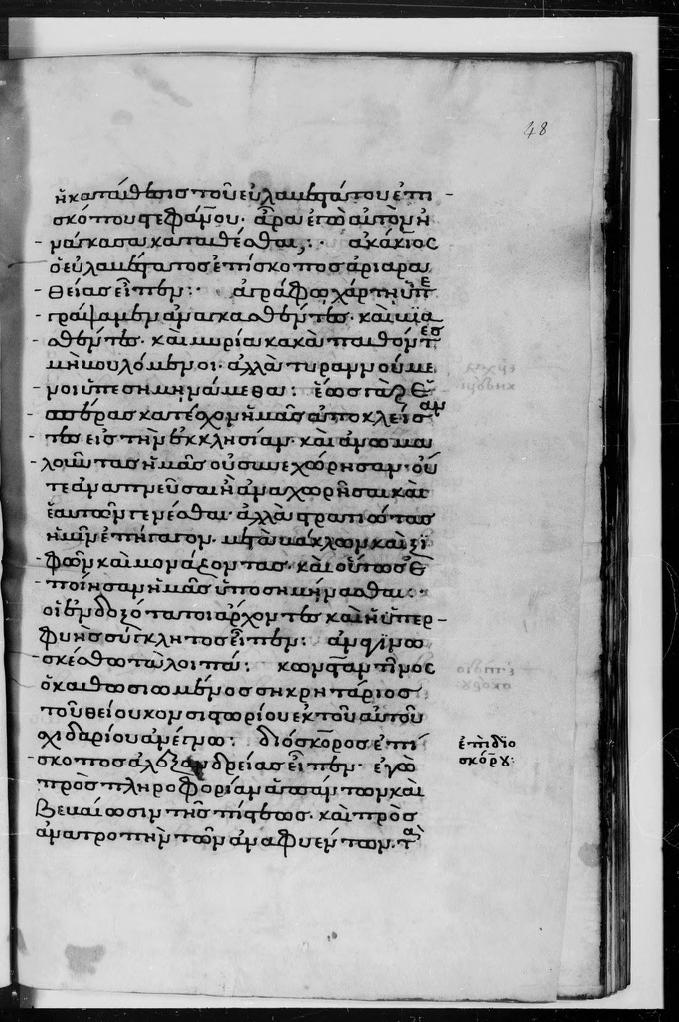 48
ἡ κατάθεσις τοῦ εὐλαβεστάτου ἐπι
σκόπου στεφάνου· ἆρα ἐγὼ αὐτὸν ἠ
νάγκασα καταθέσθαι; ἀκάκιος
ὁ εὐλαβέστατος ἐπίσκοπος ἀριαρα
θείας εἶπεν· ἀγράφω χάρτη ὑπε
γράψαμεν ἀναγκασθέντες· καὶ βια
σθέντες· καὶ μυρία κακὰ παθόντες
μὴ βουλόμενοι· ἀλλὰ τυραννούμε
νοι ὑπεσημηνάμεθα· ἕως γὰρ ἑ
σπέρας κατέσχον ἡμᾶς ἀποκλείσαν
τες εἰς τὴν ἐκκλησίαν· καὶ ἀνωμα
λοῦντας ἡμᾶς οὐ συνεχώρησαν· οὔ
τε ἀναπνεῦσαι ἢ ἀναχωρῆσαι καὶ
ἑαυτῶν γενέσθαι· ἀλλὰ στρατιώτας
ἡμῖν ἐπήγαγον· μετὰ βάκλων καὶ ξι
φῶν καὶ μονάζοντας· καὶ οὕτως ἐ
ποίησαν ἡμᾶς ὑποσημήνασθαι·
οἱ ἐνδοξότατοι ἄρχοντες καὶ ἡ ὑπερ
φυὴς σύγκλητος εἶπεν· ἀναγινω
σκέσθω τὰ λοιπά· κωνσταντῖνος
ὁ καθωσιωμένος σηκρητάριος
τοῦ θείου κονσιστωρίου ἐκ τοῦ αὐτοῦ
σχιδαρίου ἀνέγνω· διόσκορος ἐπί
σκοπος ἀλεξανδρείας εἶπεν· ἐγὼ
πρὸς πληροφορίαν ἁπάντων καὶ
βεβαίωσιν τῆς πίστεως· καὶ πρὸς
ἀνατροπὴν τῶν ἀναφυέντων· τὰ
ἐπὶ διο
σκόρου: